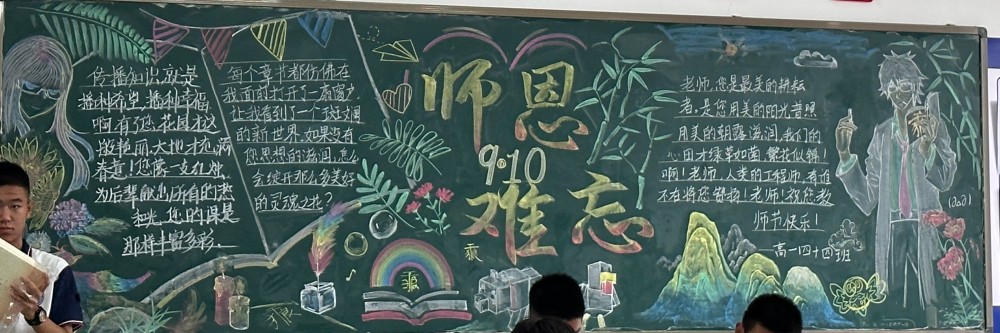 传播知识，就是
播种希望，播种幸福，
啊，有了您，花园才这
般艳丽，大地才充满
春意！您像一支红烛，
为后辈献出所有的热
和光，您的品格是
那样丰富多彩。
每个章节都仿佛在
我面前打开了一扇窗户
让我看到了一个斑斓
的新世界。如果没有
您思想的滋润，怎么
会绽开那么多美好
的灵魂之花？
师恩
9·10
难忘
老师，您是最美的耕耘
者，是您用美的阳光普照
用美的朝露滋润，我们的
心田才绿草如茵，繁花似锦！
啊！老师，人类的工程师，有谁
不在将您赞扬！老师！祝您教
师节快乐！
高一四十四班